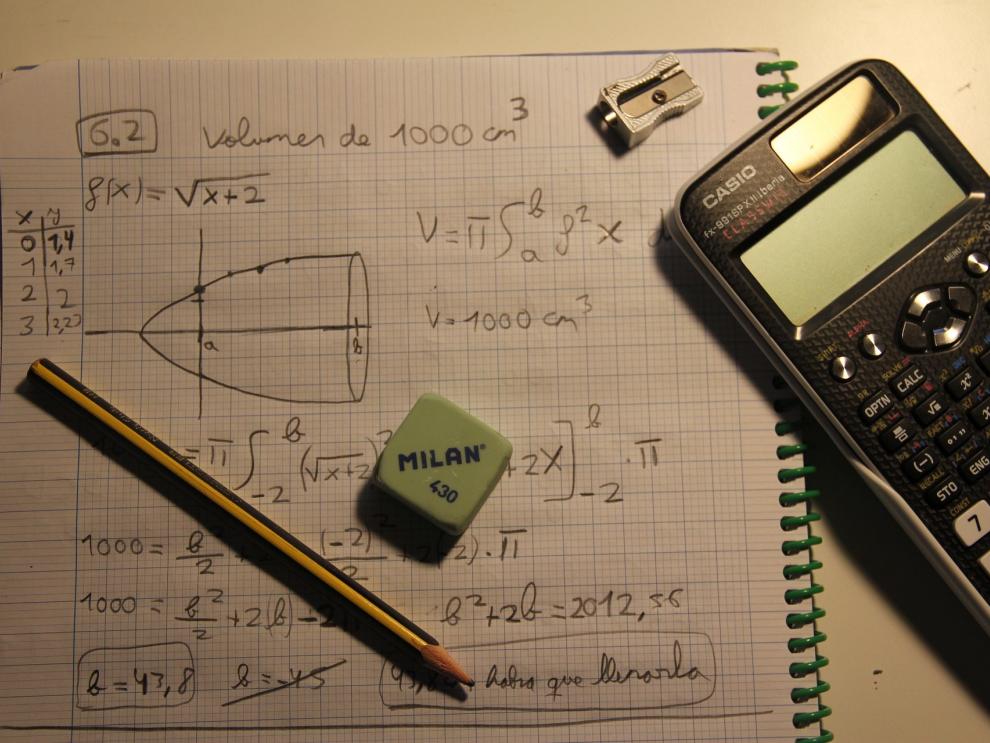 6.2 Volumen de 1000 cm³
f(x) = √x+2
x y
0 1,4
1 1,7
2 2
3 2,23
V = π ∫ₐᵇ f² x
V = 1000 cm³
a b
= π ∫₋₂ᵇ (√x+2)² +2x]₋₂ᵇ · π
1000 = b²/2 + (-2)²/2 + 2(-2) · π
1000 = b²/2 + 2(b) - 2 b² + 2b = 2012,56
b = 43,8 b = -45 habra que llenarla
MILAN
430
CASIO
fx-991SPX II Iberia
CLASSWIZ
MENU
OPTN
CALC
STO
ENG
7